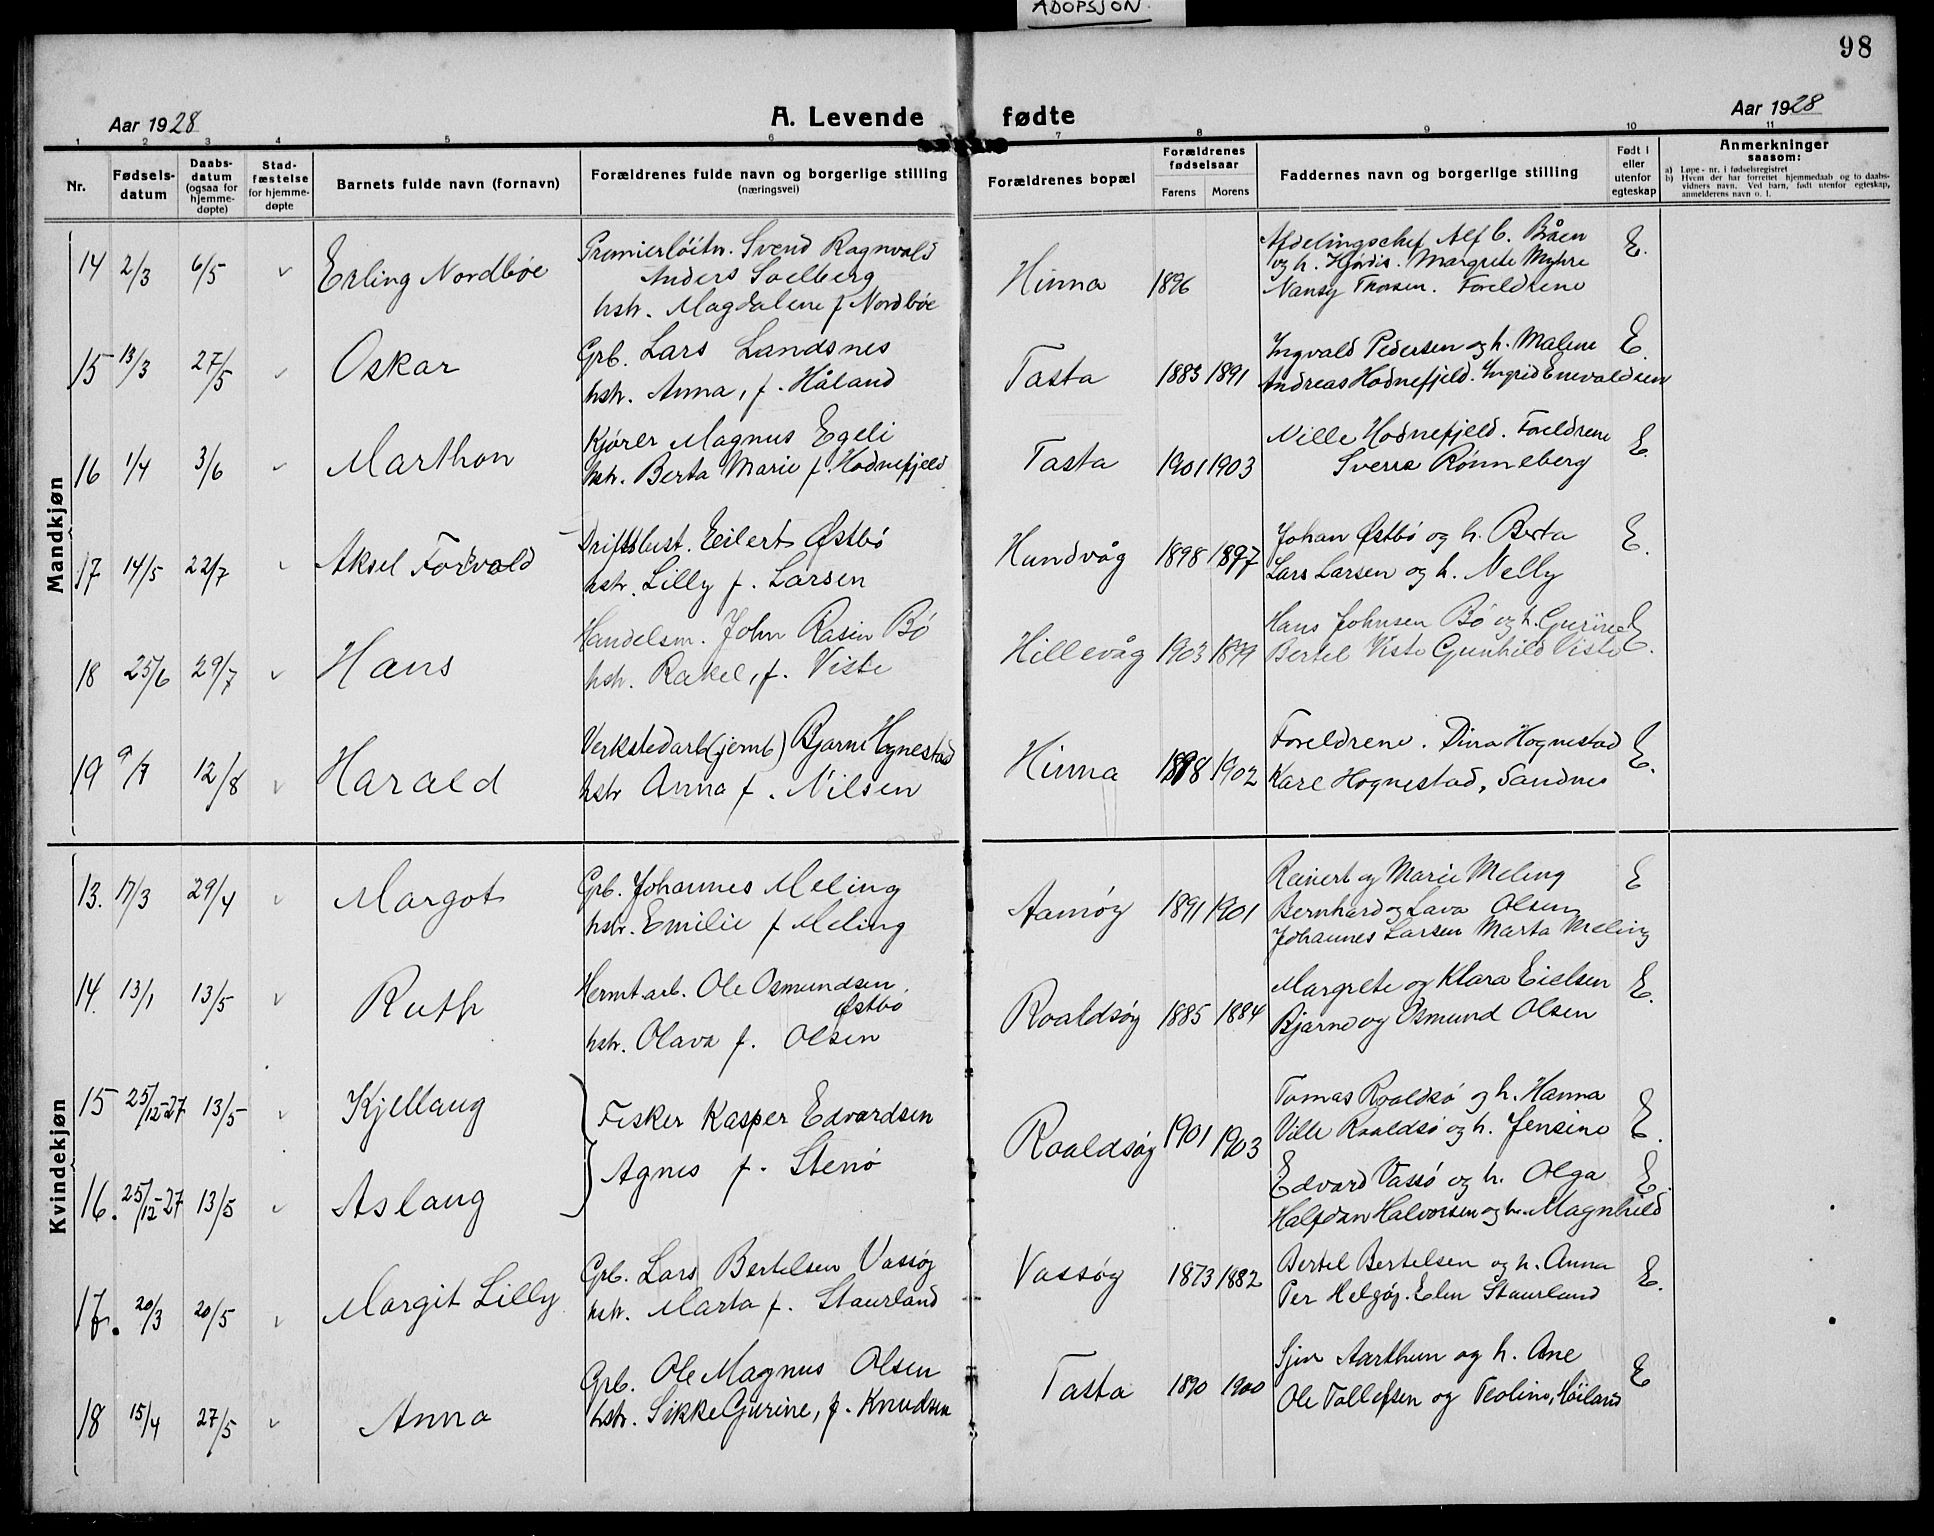 ADOPSJON.
98
Aar 1928
A. Levende fødte
Aar 1928
1 2 3 4 5 6 7 8 9 10 11
Nr.
Fødsels-
datum
Daabs-
datum
(ogsaa for
hjemme-
døpte)
Stad-
fæstelse
for hjemme-
døpte
Barnets fulde navn (fornavn)
Forældrenes fulde navn og borgerlige stilling
(næringsvei)
Forældrenes bopæl
Forældrenes
fødselsaar
Farens Morens
Faddernes navn og borgerlige stilling
Født i
eller
utenfor
egteskap
Anmerkninger
saasom:
a) Løpe - nr. i fødselsregistret
b) Hvem der har forrettet hjemmedaab og to daabs-
vidners navn. Ved barn, født utenfor egteskap,
anmelderens navn o. l.
Mandkjøn
14 2/3 6/5 Erling Nordbøe
Premierløitn. Svend Ragnvald
Anders Soelberg
hstr. Magdalene f Nordbøe
Hinna 1896
Afdelingschef Alf C. Båen
og h. Hjørdis. Margrete Myhre
Nansy Thorsen. Foreldrene
E.
15 13/3 27/5 Oskar
Grb. Lars Landsnes
hstr. Anna, f. Håland
Tasta 1883 1891
Ingvald Pedersen og h. Malene
Andreas Hodnefjeld. Ingrid Enevaldsen
E.
16 1/4 3/6 Marthon
Kjører Magnus Egeli
hstr. Berta Marie f. Hodnefjeld
Tasta 1901 1903
Nille Hodnefjeld. Foreldrene
Sverre Rönneberg
E.
17 14/5 22/7 Aksel Torvald
Driftsbest. Eilert Østbö
hstr. Lilly f. Larsen
Hundvåg 1898 1897
Johan Østbö og h. Berta
Lars Larsen og h. Nelly
E.
18 25/6 29/7 Hans
Handelsm. John Rasin Bö
hstr. Rakel, f. Viste
Hillevåg 1903 1899
Hans Johnsen Bö og h. Gurine
Bertel Viste Gunhild Viste
E.
19 9/7 12/8 Harald
Verkstedarb (jernb) Bjarne Hognestad
hstr Anna f. Nilsen
Hinna 1898 1902
Foreldrene. Dina Hognestad
Karl Hognestad, Sandnes
E.
Kvindekjøn
13. 17/3 29/4 Margot
Grb. Johannes Meling
hstr. Emilie f Meling
Aamøy 1891 1901
Reinert og Marie Meling
Bernhard og Lava Olsen
Johannes Larsen Marta Meling
E
14. 13/1 13/5 Ruth
Hermt.arb. Ole Osmundsen.
Østbö
hstr. Olava f. Olsen
Roaldsøy 1885 1884
Margrete og Klara Eielsen
Bjarne og Osmund Olsen
E.
15 25/12-27 13/5 Kjellaug
Fisker Kasper Edvardsen
Agnes f. Stenö
Roaldsøy 1901 1903
Tomas Roaldsö og h. Hanna
Ville Roaldsö og h. Jensine
E.
16. 25/12-27 13/5 Aslaug
Edvard Vassö og h. Olga
Halfdan Halvorsen og h. Magnhild
E.
17. 20/3 20/5 Margit Lilly
Grb. Lars Bertelsen Vassøy
hstr. Marta f. Staurland
Vassøy 1873 1882
Bertel Bertelsen og h. Anna
Per Helgøy. Elen Staurland
E.
18 15/4 27/5 Anna
Grb. Ole Magnus Olsen
hstr. Sikke Gurine, f. Knudsen
Tasta 1890 1900
Aarthun og h. Ane
Ole Tollefsen og Teoline Höiland
E